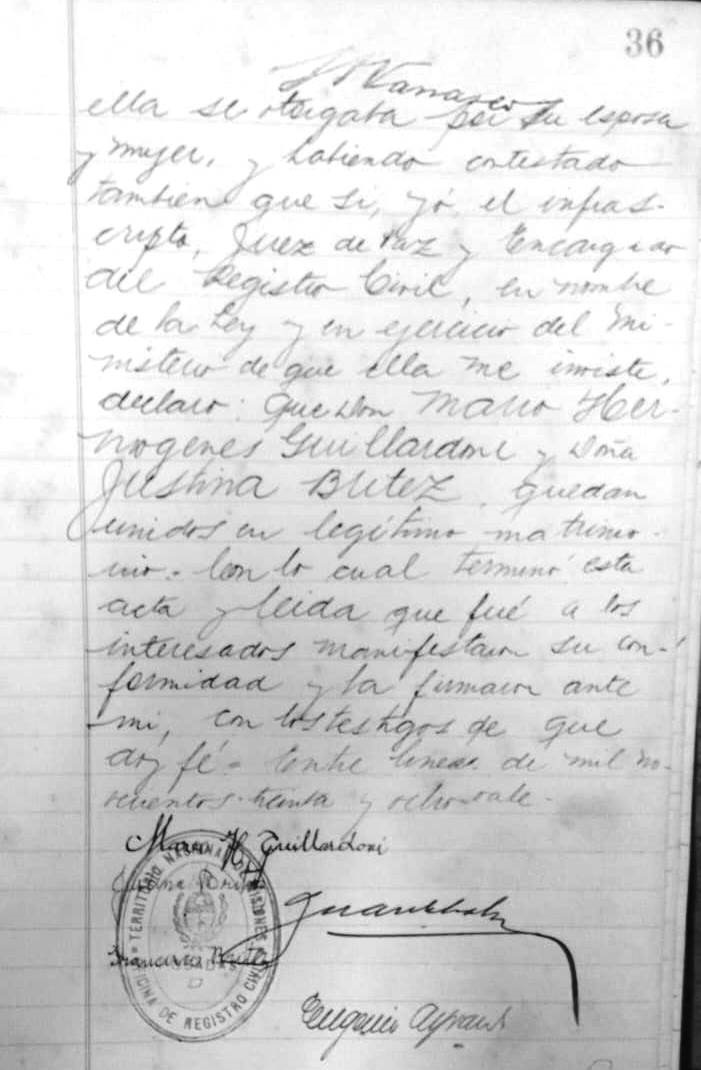 36
ella se otorgaba por su esposa
y mujer, y habiendo contestado
tambien que si, yó el infras-
cripto, Juez de Paz y Encargado
del Registro Civil, en nombre
de la Ley y en ejercicio del Mi-
nisterio de que ella me inviste,
declaro: Que Don Mario Her-
mogenes Guillardoni y Doña
Justina Britez, quedan
unidos en legítimo matrimo-
nio.- Con lo cual terminó esta
acta y leida que fué a los
interesados manifestaron su con-
formidad y la firmaron ante
mi, con los testigos de que
doy fé.- Entre lineas de mil no-
vecientos treinta y ocho-vale-
Mario H. Guillardoni
Francisco
Eugenio
TERRITORIO NACIONAL DE MISIONES
OFICINA DE REGISTRO CIVIL